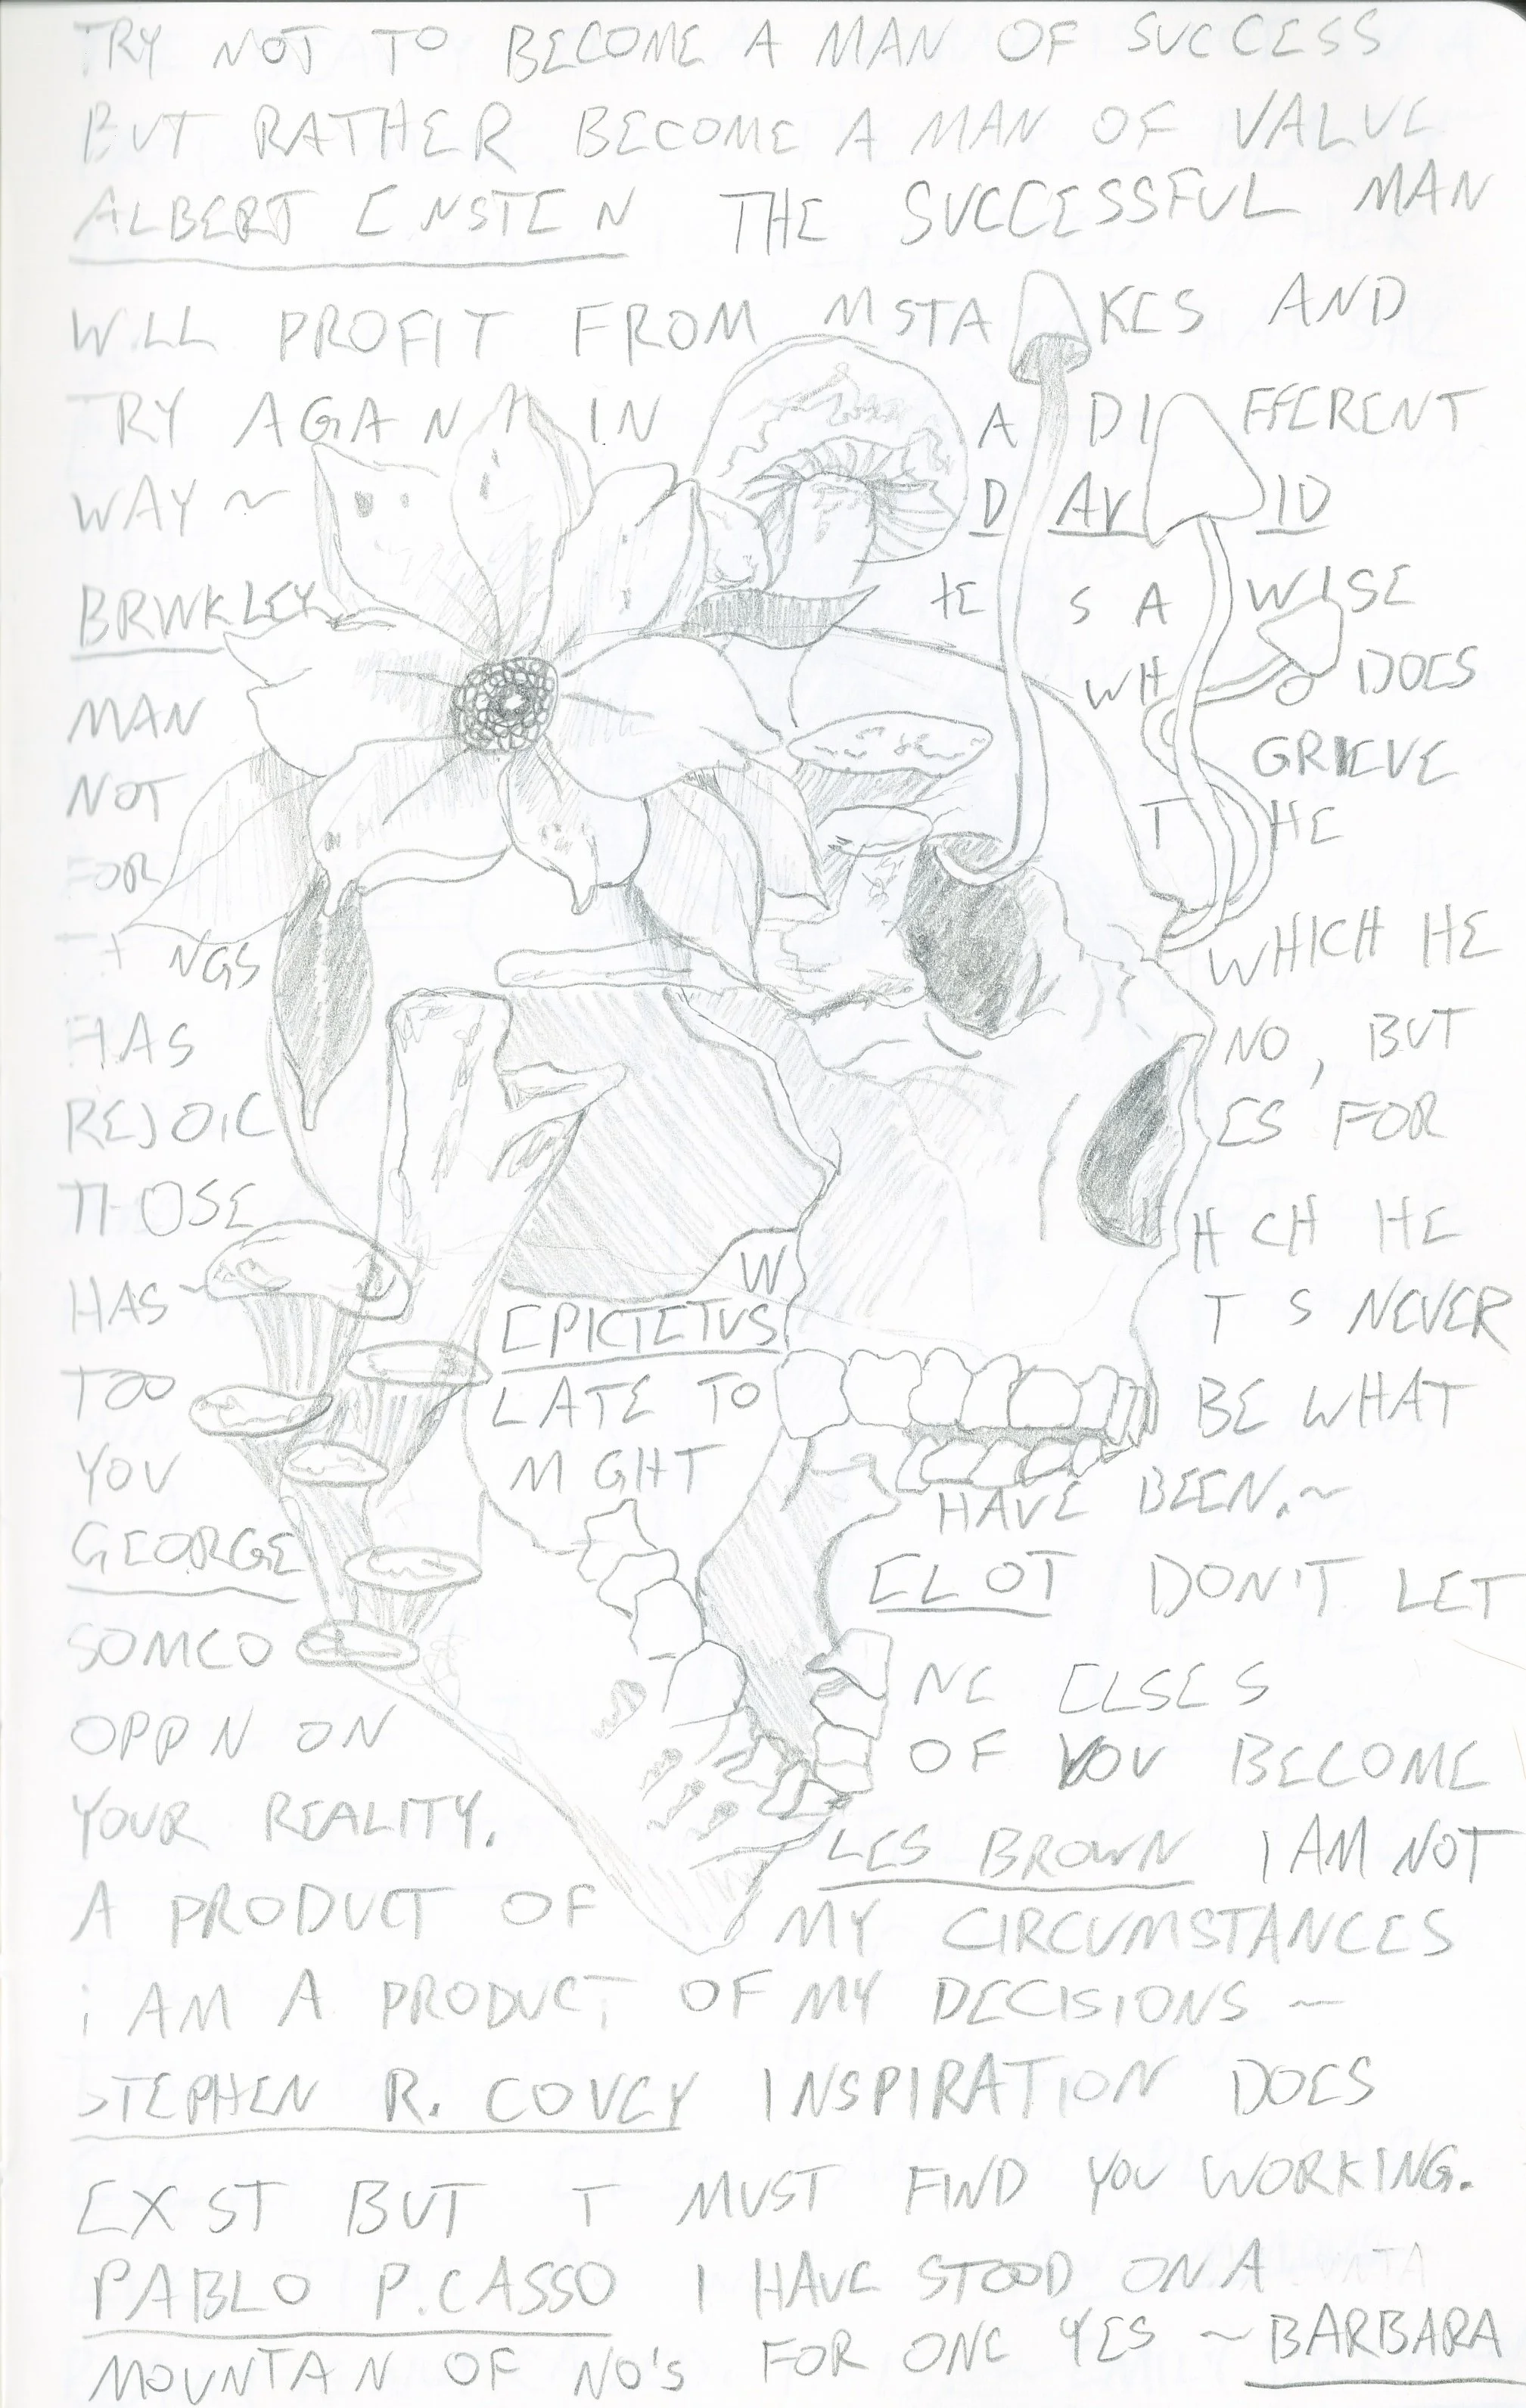 TRY NOT TO BECOME A MAN OF SUCCESS
BUT RATHER BECOME A MAN OF VALUE
ALBERT ENSTEN THE SUCCESSFUL MAN
WILL PROFIT FROM MSTAKES AND
TRY AGAN IN A DIFFERENT
WAY ~ DAVID
BRWKLEY HE S A WISE
MAN WHO DOES
NOT GRIEVE
FOR THE
THNGS WHICH HE
HAS NO, BUT
REJOICES FOR
THOSE WHCH HE
HAS~ EPICTETUS T S NEVER
TOO LATE TO BE WHAT
YOU MGHT HAVE BEEN.~
GEORGE ELOT DON'T LET
SOMEONE ELSES
OPPNON OF YOU BECOME
YOUR REALITY. LES BROWN I AM NOT
A PRODUCT OF MY CIRCUMSTANCES
i AM A PRODUCT OF MY DECISIONS ~
STEPHEN R. COVEY INSPIRATION DOES
EXST BUT T MUST FIND YOU WORKING.
PABLO P.CASSO I HAVE STOOD ON A
MOUNTAN OF NO'S FOR ONE YES ~ BARBARA